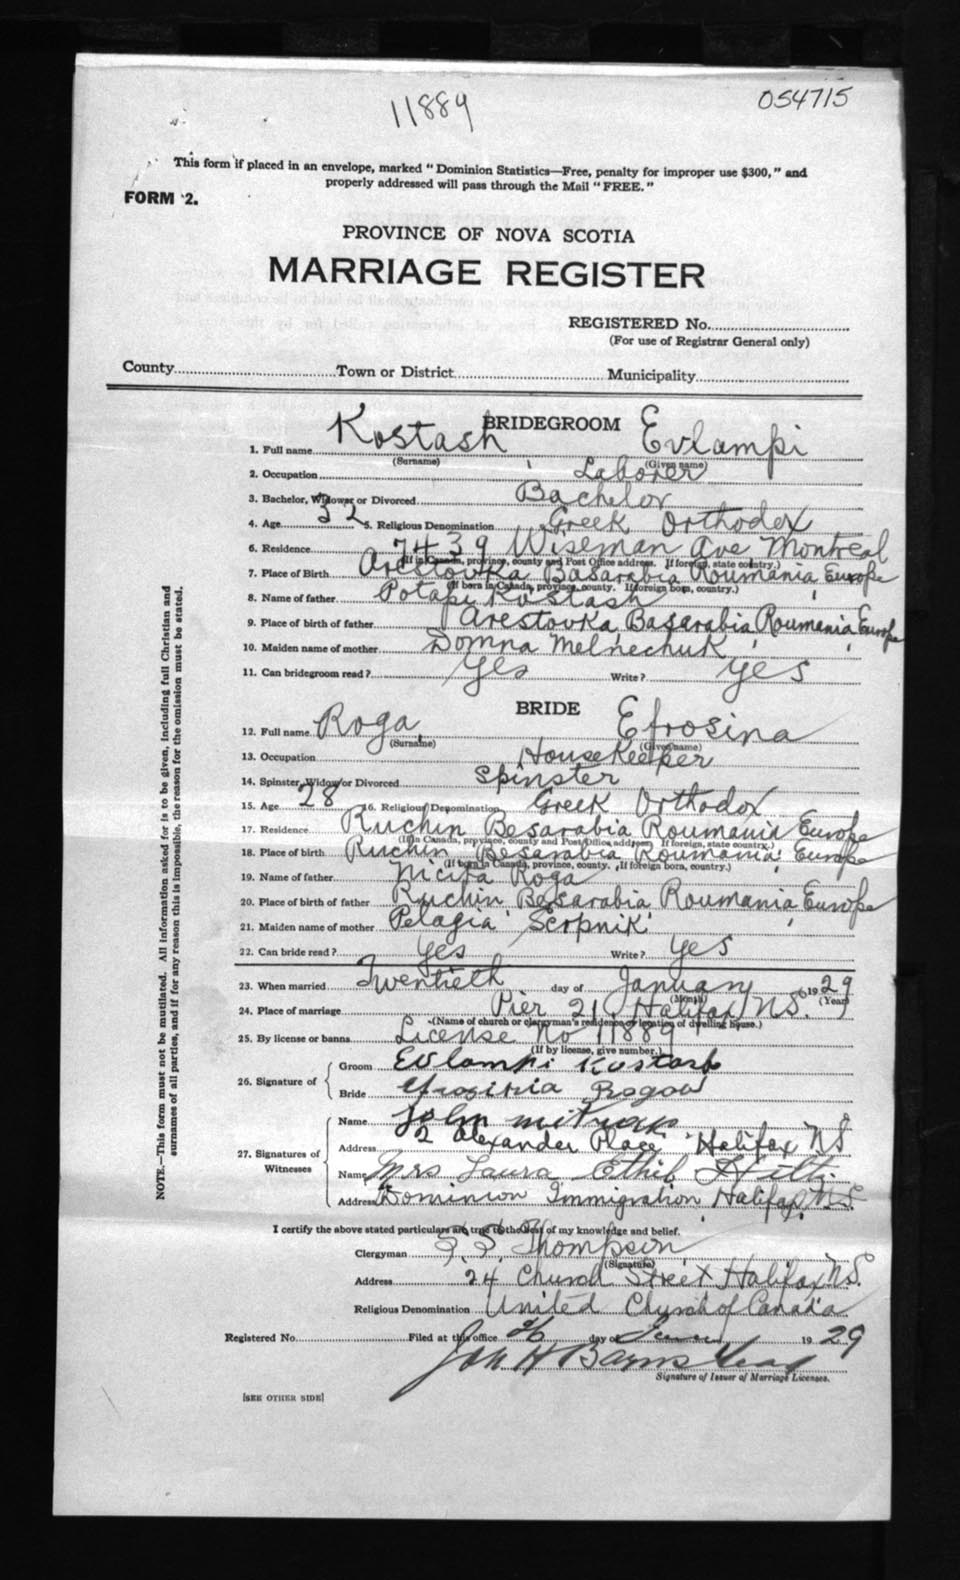 11889
054715
This form if placed in an envelope, marked "Dominion Statistics—Free, penalty for improper use $300," and
properly addressed will pass through the Mail "FREE."
FORM 2.
PROVINCE OF NOVA SCOTIA
MARRIAGE REGISTER
REGISTERED No.
(For use of Registrar General only)
County Town or District Municipality
BRIDEGROOM
1. Full name Kostash Evlampi
(Surname) (Given name)
2. Occupation Laborer
3. Bachelor, Widower or Divorced Bachelor
4. Age 32 5. Religious Denomination Greek Orthodox
6. Residence 7439 Wiseman Ave Montreal
(If in Canada, province, county and Post Office address. If foreign, state country.)
7. Place of Birth Arestovka Basarabia Roumania Europe
(If born in Canada, province, county. If foreign born, country.)
8. Name of father Potapi Kostash
9. Place of birth of father Arestovka, Basarabia, Roumania, Europe
10. Maiden name of mother Domna Melnechuk
11. Can bridegroom read? Yes Write? yes
BRIDE
12. Full name Roga Efrosina
(Surname) (Given name)
13. Occupation HouseKeeper
14. Spinster, Widow or Divorced Spinster
15. Age 28 16. Religious Denomination Greek Orthodox
17. Residence Ruchin Besarabia Roumania Europe
(If in Canada, province, county and Post Office address. If foreign, state country.)
18. Place of birth Ruchin Besarabia Roumania Europe
(If born in Canada, province, county. If foreign born, country.)
19. Name of father Nicita Roga
20. Place of birth of father Ruchin Besarabia Roumania, Europe
21. Maiden name of mother Pelagia Scrpnik
22. Can bride read? yes Write? yes
23. When married Twentieth day of January 1929
(Month) (Year)
24. Place of marriage Pier 21, Halifax, N.S.
(Name of church or clergyman's residence or location of dwelling house.)
25. By license or banns License No 11889
(If by license, give number.)
26. Signature of Groom Evlampi Kostash
Bride Rogow
27. Signatures of Witnesses Name John
Address 2 Alexander Place Halifax NS
Name Mrs Laura Ethel
Address Dominion Immigration Halifax, N.S.
I certify the above stated particulars are true to the best of my knowledge and belief.
Clergyman S. Thompson
(Signature)
Address 24 Church Street Halifax N.S.
Religious Denomination United Church of Canada
Registered No. Filed at this office 26 day of 1929
Barnstead
Signature of Issuer of Marriage Licenses.
[SEE OTHER SIDE]
NOTE.—This form must not be mutilated. All information asked for is to be given, including full Christian and
surnames of all parties, and if for any reason this is impossible, the reason for the omission must be stated.